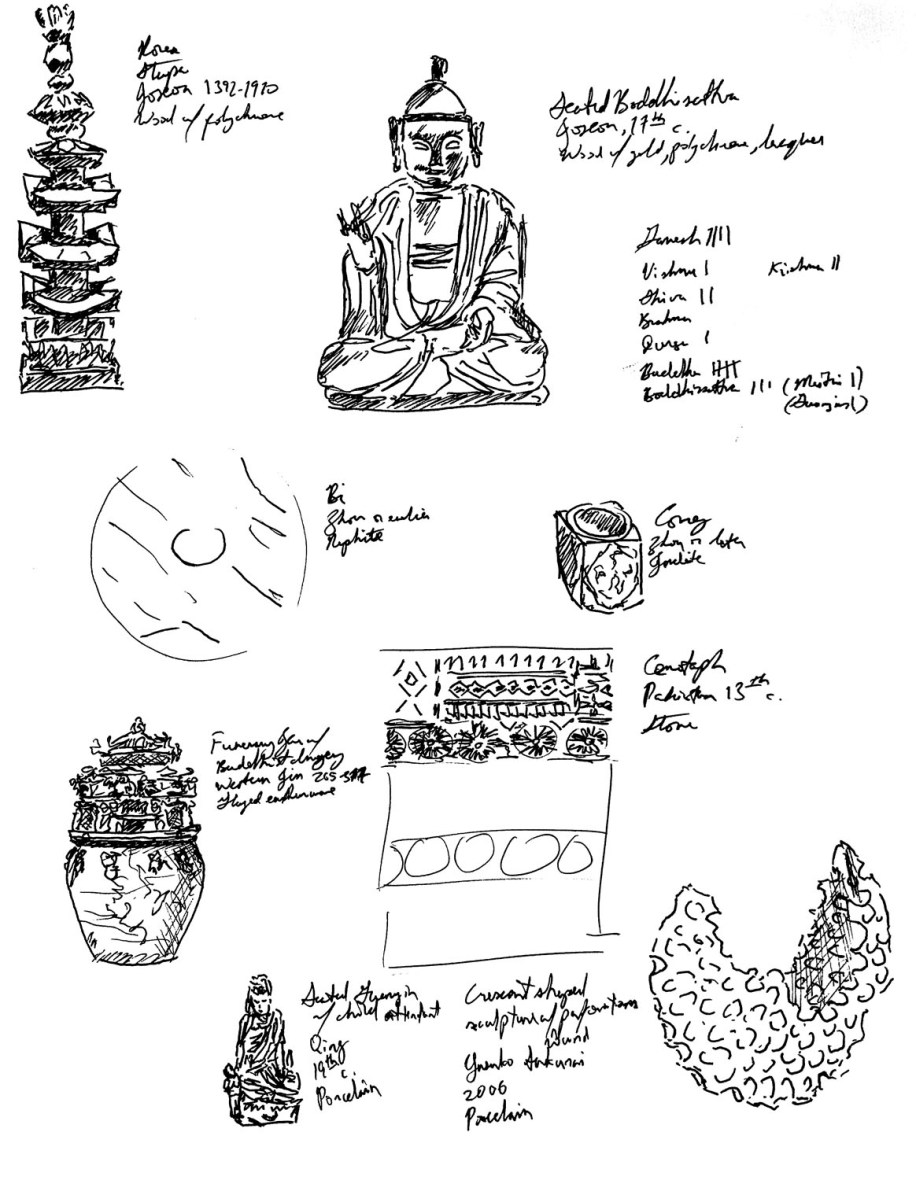 Korea
Stupa
Joseon 1392-1910
Wood w/ polychrome
Seated Boddhisattva
Joseon, 17th c.
Wood w/ gold, polychrome, lacquer
Ganesh IIII
Vishnu I Krishna II
Shiva II
Brahma
Durga I
Buddha IIII
Boddhisattva III (I)
(Guanyin I)
Bi
Zhou or earlier
Nephrite
Cong
Zhou or later
Jadeite
Cenotaph
Pakistan 13th c.
Stone
Funerary Jar w/
Buddhist
Western Jin 265-
Glazed earthenware
Seated Guanyin
w/ child attendant
Qing
19th c.
Porcelain
Crescent shaped
sculpture w/ perforations
2006
Porcelain